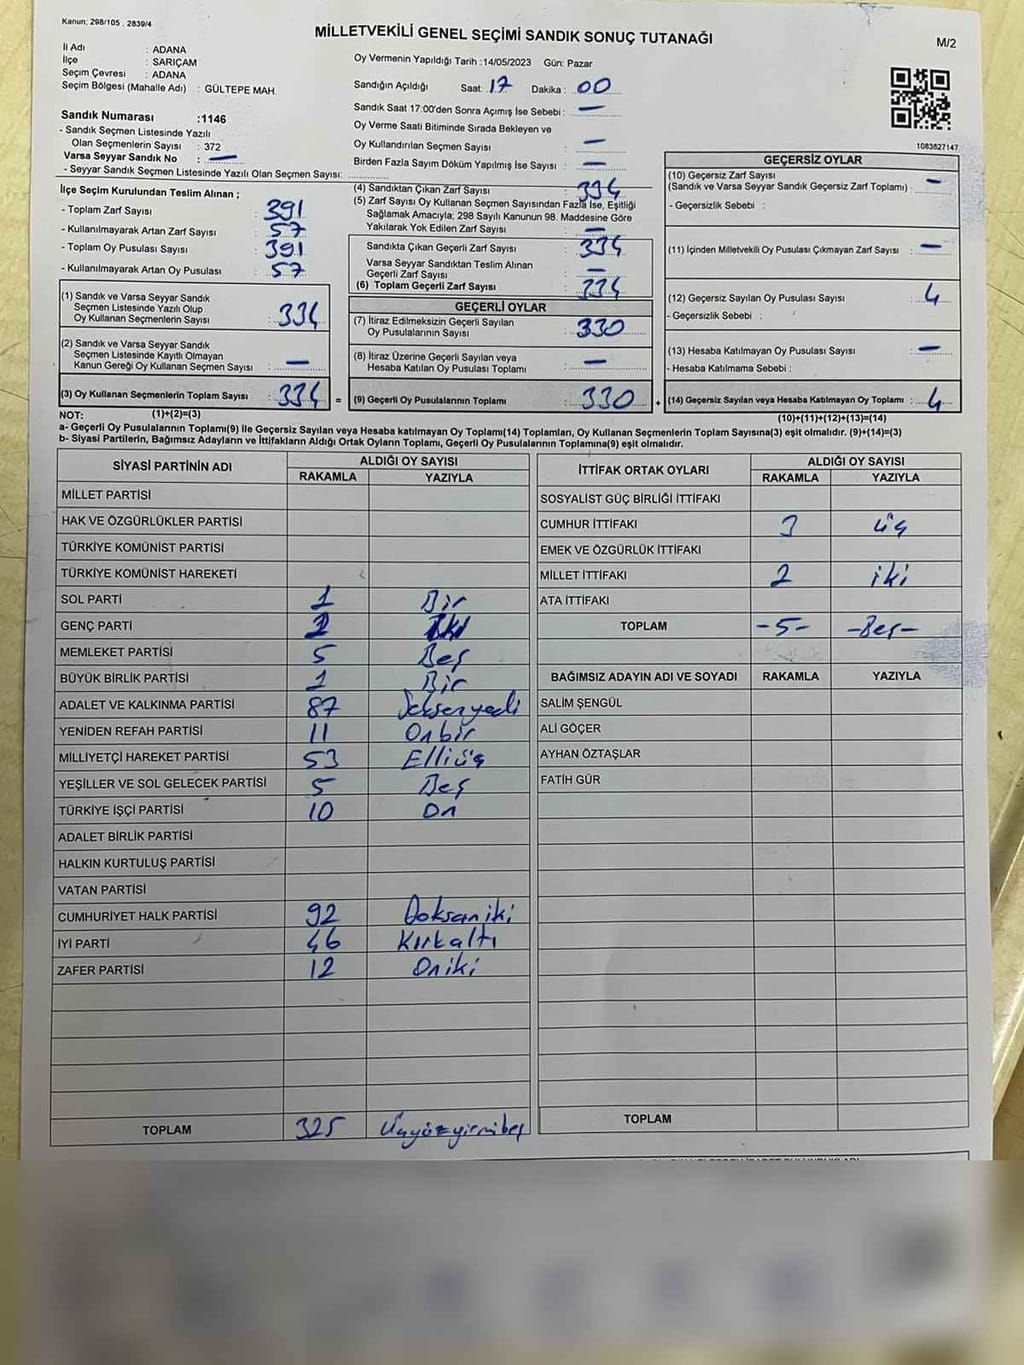 Kanun; 298/105 , 2839/4
MİLLETVEKİLİ GENEL SEÇİMİ SANDIK SONUÇ TUTANAĞI
M/2
İl Adı : ADANA
İlçe : SARIÇAM
Seçim Çevresi : ADANA
Seçim Bölgesi (Mahalle Adı) : GÜLTEPE MAH.
Oy Vermenin Yapıldığı Tarih :14/05/2023 Gün: Pazar
Sandığın Açıldığı Saat: 17 Dakika : 00
Sandık Saat 17:00'den Sonra Açımış İse Sebebi : —
Oy Verme Saati Bitiminde Sırada Bekleyen ve
Oy Kullandırılan Seçmen Sayısı : —
Birden Fazla Sayım Döküm Yapılmış İse Sayısı : —
Sandık Numarası :1146
- Sandık Seçmen Listesinde Yazılı
Olan Seçmenlerin Sayısı : 372
Varsa Seyyar Sandık No : —
- Seyyar Sandık Seçmen Listesinde Yazılı Olan Seçmen Sayısı:
1083827147
İlçe Seçim Kurulundan Teslim Alınan ;
- Toplam Zarf Sayısı : 391
- Kullanılmayarak Artan Zarf Sayısı : 57
- Toplam Oy Pusulası Sayısı : 391
- Kullanılmayarak Artan Oy Pusulası : 57
(1) Sandık ve Varsa Seyyar Sandık
Seçmen Listesinde Yazılı Olup
Oy Kullanan Seçmenlerin Sayısı : 334
(2) Sandık ve Varsa Seyyar Sandık
Seçmen Listesinde Kayıtlı Olmayan
Kanun Gereği Oy Kullanan Seçmen Sayısı : —
(3) Oy Kullanan Seçmenlerin Toplam Sayısı : 334 =
(4) Sandıktan Çıkan Zarf Sayısı : 334
(5) Zarf Sayısı Oy Kullanan Seçmen Sayısından Fazla İse, Eşitliği
Sağlamak Amacıyla; 298 Sayılı Kanunun 98. Maddesine Göre
Yakılarak Yok Edilen Zarf Sayısı : —
Sandıkta Çıkan Geçerli Zarf Sayısı : 334
Varsa Seyyar Sandıktan Teslim Alınan
Geçerli Zarf Sayısı : —
(6) Toplam Geçerli Zarf Sayısı : 334
GEÇERLİ OYLAR
(7) İtiraz Edilmeksizin Geçerli Sayılan
Oy Pusulalarının Sayısı : 330
(8) İtiraz Üzerine Geçerli Sayılan veya
Hesaba Katılan Oy Pusulası Toplamı : —
(9) Geçerli Oy Pusulalarının Toplamı : 330 +
GEÇERSİZ OYLAR
(10) Geçersiz Zarf Sayısı
(Sandık ve Varsa Seyyar Sandık Geçersiz Zarf Toplamı) : —
- Geçersizlik Sebebi :
(11) İçinden Milletvekili Oy Pusulası Çıkmayan Zarf Sayısı : —
(12) Geçersiz Sayılan Oy Pusulası Sayısı : 4
- Geçersizlik Sebebi :
(13) Hesaba Katılmayan Oy Pusulası Sayısı : —
- Hesaba Katılmama Sebebi :
(14) Geçersiz Sayılan veya Hesaba Katılmayan Oy Toplamı : 4
NOT: (1)+(2)=(3)
(10)+(11)+(12)+(13)=(14)
a- Geçerli Oy Pusulalarının Toplamı(9) ile Geçersiz Sayılan veya Hesaba katılmayan Oy Toplamı(14) Toplamları, Oy Kullanan Seçmenlerin Toplam Sayısına(3) eşit olmalıdır. (9)+(14)=(3)
b- Siyasi Partilerin, Bağımsız Adayların ve İttifakların Aldığı Ortak Oyların Toplamı, Geçerli Oy Pusulalarının Toplamına(9) eşit olmalıdır.
SİYASİ PARTİNİN ADI ALDIĞI OY SAYISI
RAKAMLA YAZIYLA
MİLLET PARTİSİ
HAK VE ÖZGÜRLÜKLER PARTİSİ
TÜRKİYE KOMÜNİST PARTİSİ
TÜRKİYE KOMÜNİST HAREKETİ
SOL PARTİ 1 Bir
GENÇ PARTİ 2 İki
MEMLEKET PARTİSİ 5 Beş
BÜYÜK BİRLİK PARTİSİ 1 Bir
ADALET VE KALKINMA PARTİSİ 87 Seksenyedi
YENİDEN REFAH PARTİSİ 11 Onbir
MİLLİYETÇİ HAREKET PARTİSİ 53 Elliüç
YEŞİLLER VE SOL GELECEK PARTİSİ 5 Beş
TÜRKİYE İŞÇİ PARTİSİ 10 On
ADALET BİRLİK PARTİSİ
HALKIN KURTULUŞ PARTİSİ
VATAN PARTİSİ
CUMHURİYET HALK PARTİSİ 92 Doksaniki
İYİ PARTİ 46 Kırkaltı
ZAFER PARTİSİ 12 Oniki
TOPLAM 325 Üçyüzyirmibeş
İTTİFAK ORTAK OYLARI ALDIĞI OY SAYISI
RAKAMLA YAZIYLA
SOSYALİST GÜÇ BİRLİĞİ İTTİFAKI
CUMHUR İTTİFAKI 3 üç
EMEK VE ÖZGÜRLÜK İTTİFAKI
MİLLET İTTİFAKI 2 iki
ATA İTTİFAKI
TOPLAM -5- -Beş-
BAĞIMSIZ ADAYIN ADI VE SOYADI RAKAMLA YAZIYLA
SALİM ŞENGÜL
ALİ GÖÇER
AYHAN ÖZTAŞLAR
FATİH GÜR
TOPLAM